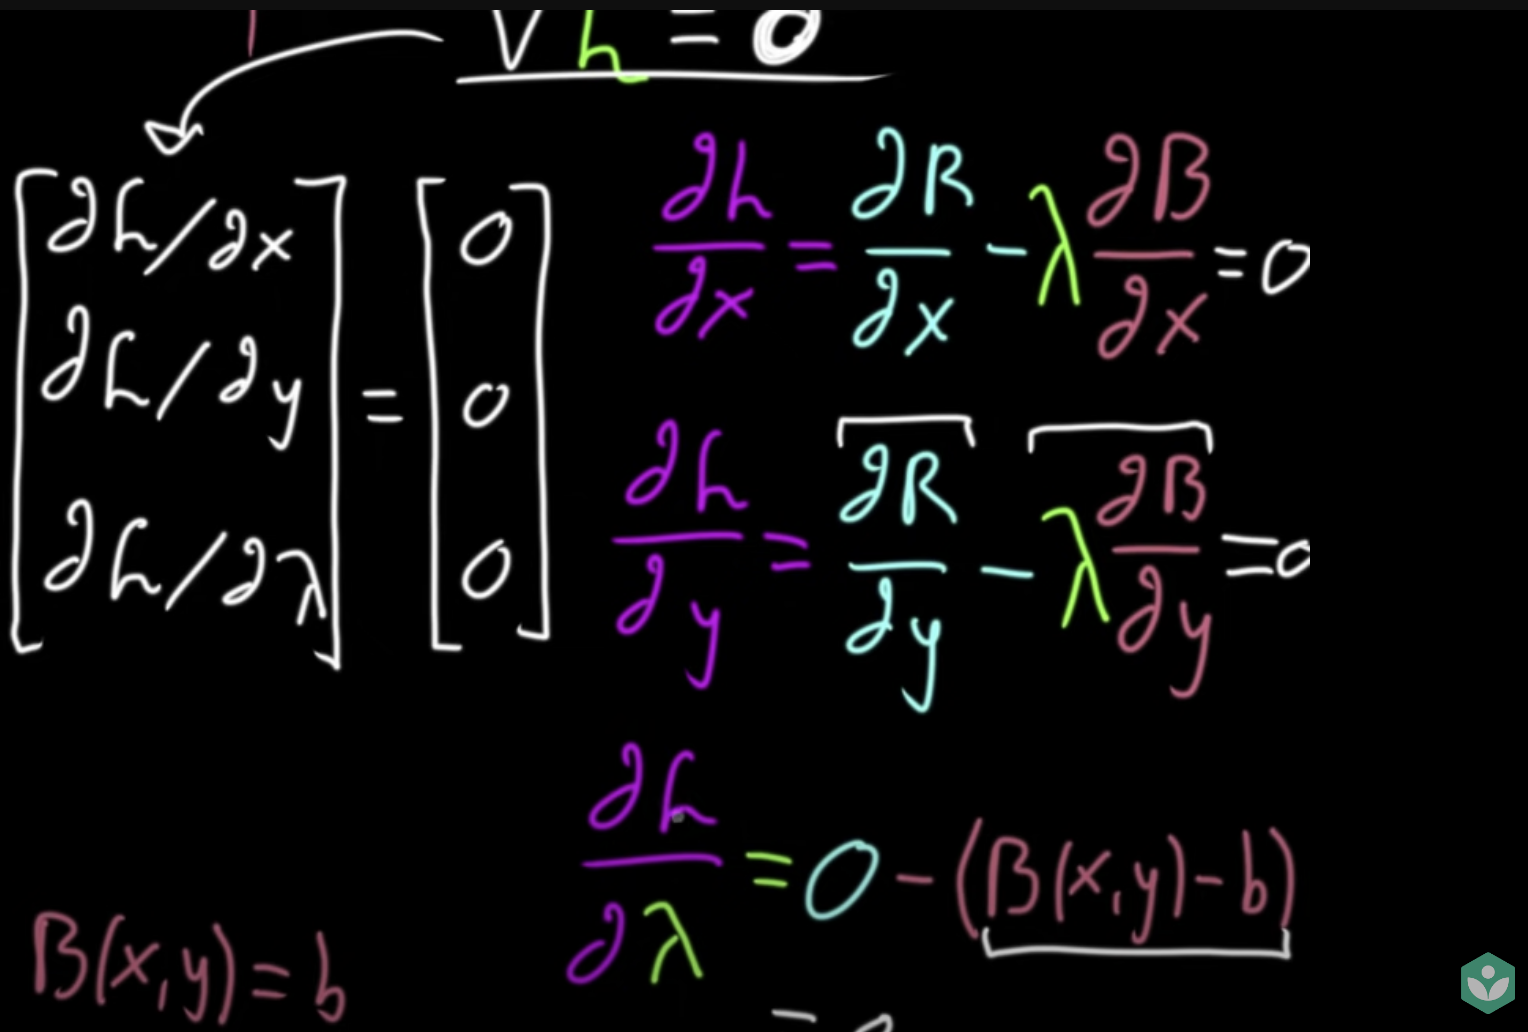 ∇h = 0
[∂h/∂x] = [0]
[∂h/∂y] = [0]
[∂h/∂λ] = [0]
∂h/∂x = ∂R/∂x - λ ∂B/∂x = 0
∂h/∂y = ∂R/∂y - λ ∂B/∂y = 0
∂h/∂λ = 0 - (B(x,y) - b)
B(x,y) = b